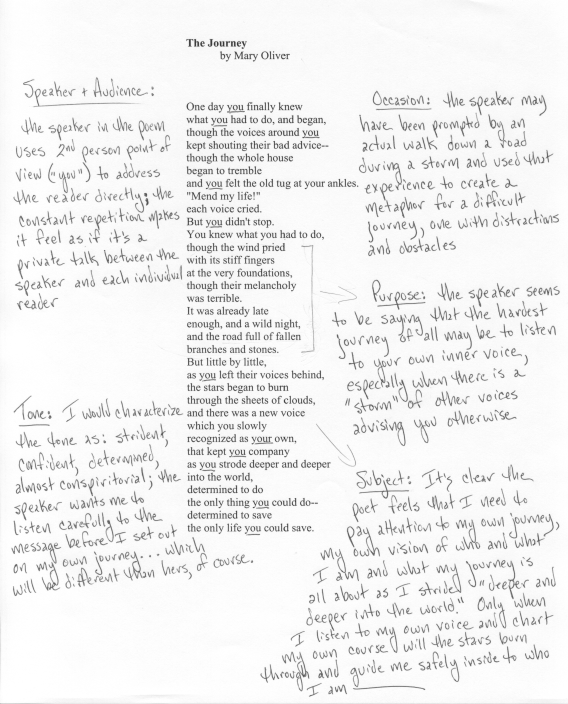 The Journey
by Mary Oliver
Speaker + Audience:
the speaker in the poem
uses 2nd person point of
view ("you") to address
the reader directly; the
constant repetition makes
it feel as if it's a
private talk between the
speaker and each individual
reader
Tone: I would characterize
the tone as: strident,
confident, determined,
almost conspiritorial; the
speaker wants me to
listen carefully to the
message before I set out
on my own journey... which
will be different than hers, of course.
One day you finally knew
what you had to do, and began,
though the voices around you
kept shouting their bad advice--
though the whole house
began to tremble
and you felt the old tug at your ankles.
"Mend my life!"
each voice cried.
But you didn't stop.
You knew what you had to do,
though the wind pried
with its stiff fingers
at the very foundations,
though their melancholy
was terrible.
It was already late
enough, and a wild night,
and the road full of fallen
branches and stones.
But little by little,
as you left their voices behind,
the stars began to burn
through the sheets of clouds,
and there was a new voice
which you slowly
recognized as your own,
that kept you company
as you strode deeper and deeper
into the world,
determined to do
the only thing you could do--
determined to save
the only life you could save.
Occasion: the speaker may
have been prompted by an
actual walk down a road
during a storm and used that
experience to create a
metaphor for a difficult
journey, one with distractions
and obstacles
Purpose: the speaker seems
to be saying that the hardest
journey of all may be to listen
to your own inner voice,
especially when there is a
"storm" of other voices
advising you otherwise
Subject: It's clear the
poet feels that I need to
pay attention to my own journey,
my own vision of who and what
I am and what my journey is
all about as I strided "deeper and
deeper into the world." Only when
I listen to my own voice and chart
my own course will the stars burn
through and guide me safely inside to who
I am